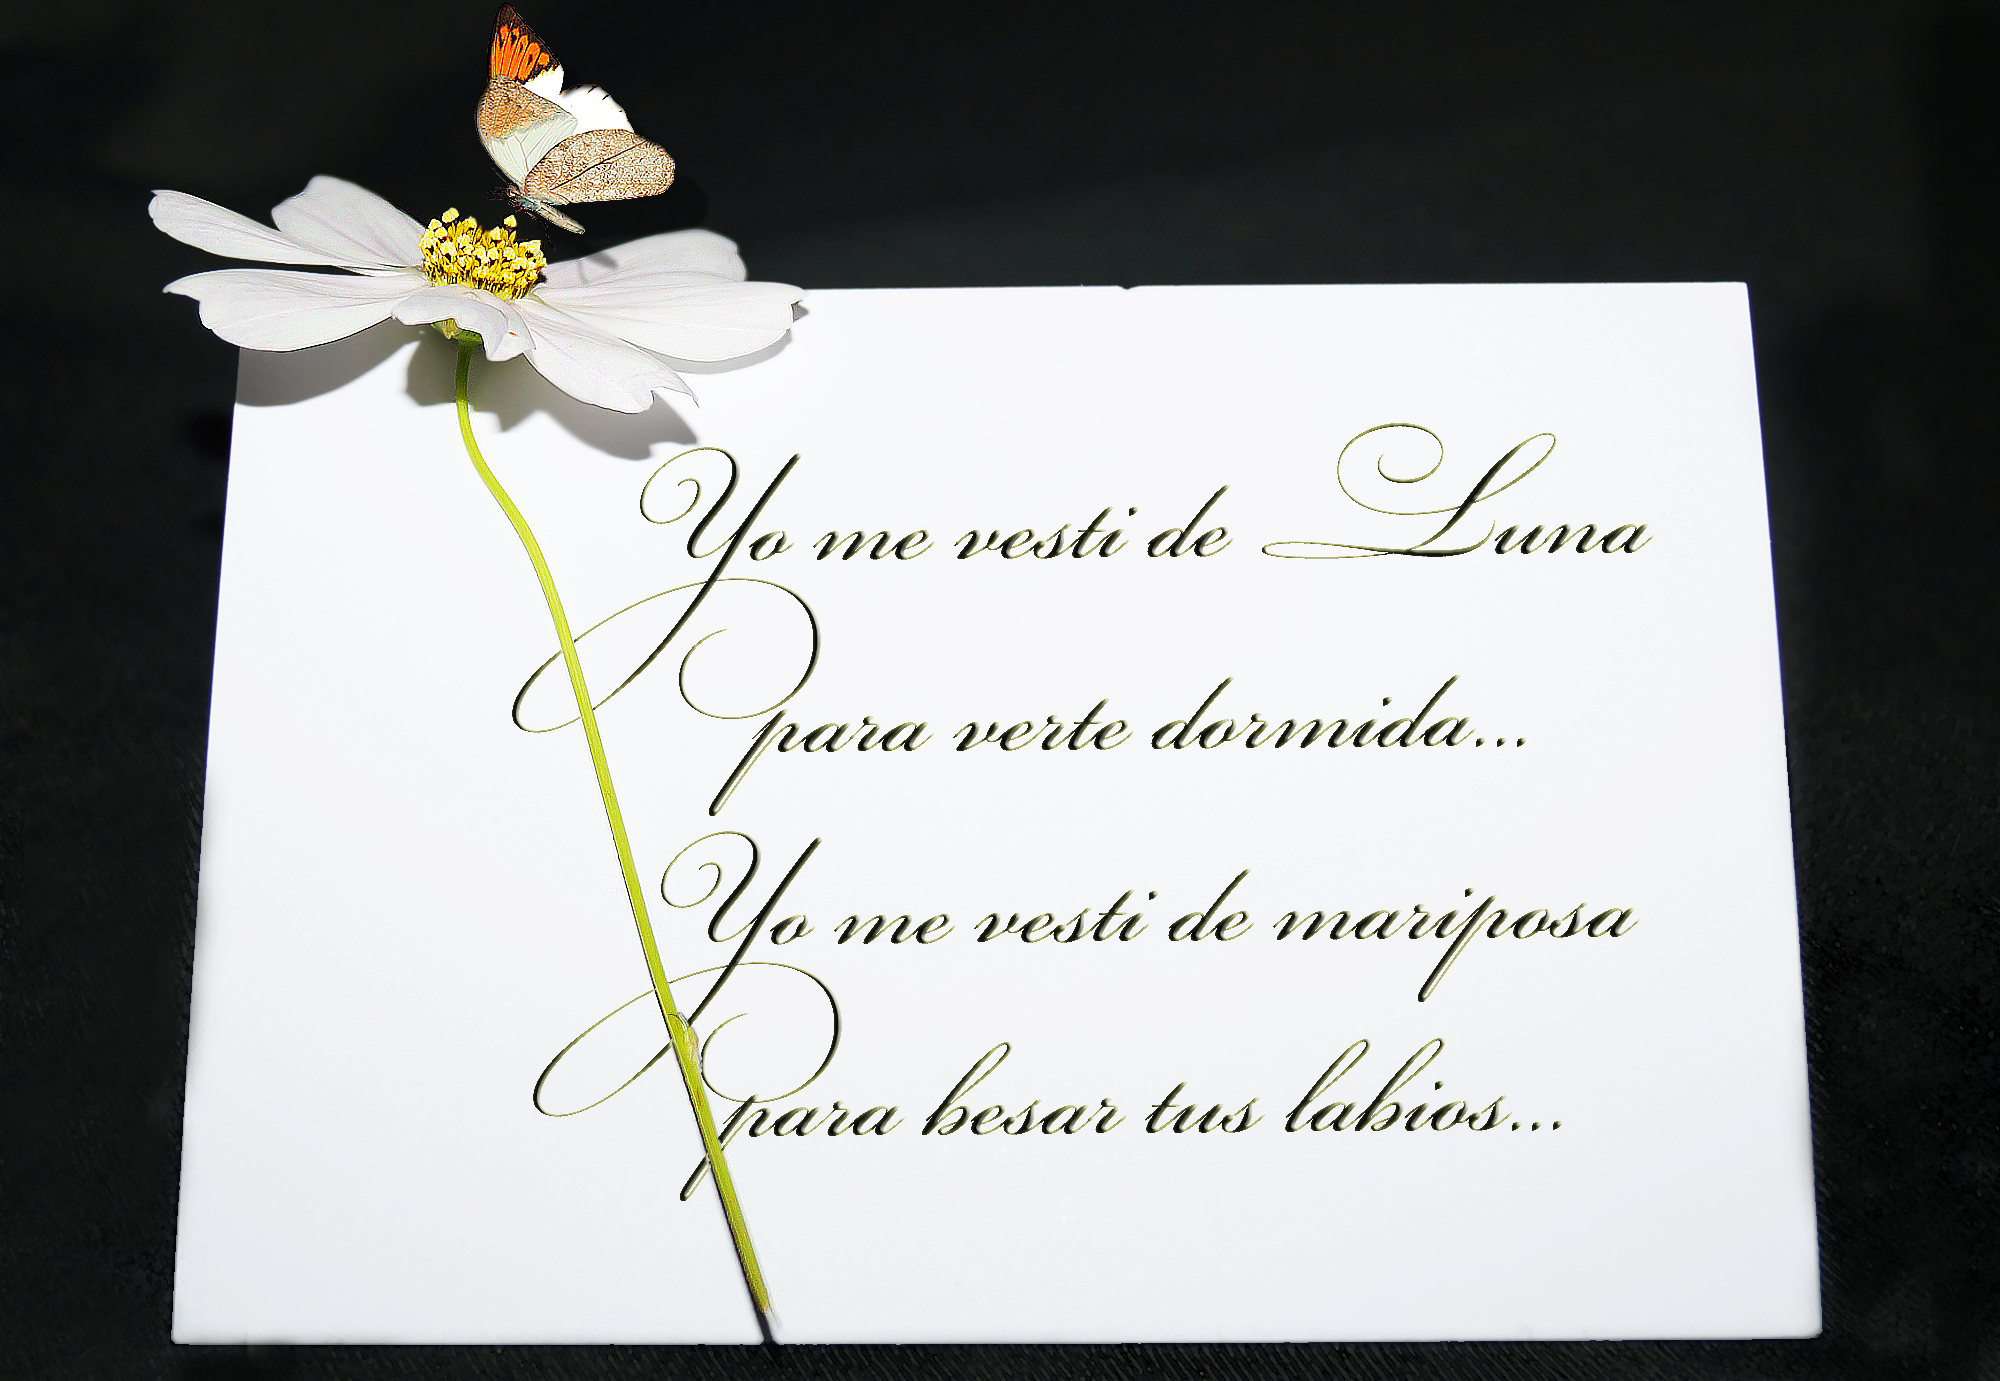 Yo me vesti de Luna
para verte dormida...
Yo me vesti de mariposa
para besar tus labios...